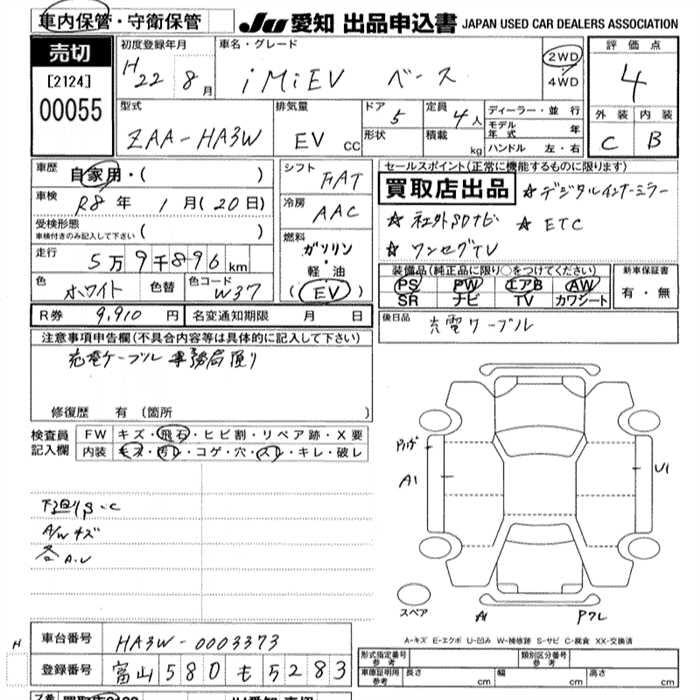 車内保管・守衛保管 JU愛知 出品申込書 JAPAN USED CAR DEALERS ASSOCIATION
売切
[2124]
00055
初度登録年月 H22年 8月
車名・グレード i MiEV ベース
2WD
4WD
評価点 4
型式 ZAA-HA3W
排気量 EV CC
ドア 5
形状
定員 4人
積載 kg
ディーラー・並行
モデル年式 年
ハンドル 左・右
外装 内装
C B
車歴 自家用・( )
車検 R8年 1月(20日)
受検形態
車検付きのみ記入して下さい ( )
走行 5万9千896km
色 ホワイト 色替 色コード W37
シフト FAT
冷房 AAC
燃料 ガソリン・軽油
(EV)
セールスポイント(正常に機能するものに限ります)
買取店出品 ☆デジタルインナーミラー
☆社外SDナビ ☆ETC
☆ワンセグTV
装備品(純正品に限り○をつけてください)
PS PW エアB AW
SR ナビ TV カワシート
新車保証書
有・無
R券 9,910円 名変通知期限 月 日
後日品 充電ケーブル
注意事項申告欄(不具合内容等は具体的に記入して下さい)
充電ケーブル 事務局渡り
修復歴 有 (箇所 )
検査員記入欄
FW キズ・飛石・ヒビ割・リペア跡・X要
内装 キズ・汚レ・コゲ・穴・スレ・キレ・破レ
下廻りS・C
A/Wキズ
各A.U
A1
U1
スペア
A1
Pクレ
A-キズ E-エクボ U-凹み W-補修跡 S-サビ C-腐食 XX-交換済
車台番号 HA3W-0003373
H
登録番号 富山580も5283
形式指定番号 参考
類別区分番号 参考
車庫証明用 参考 長さ cm 幅 cm 高さ cm